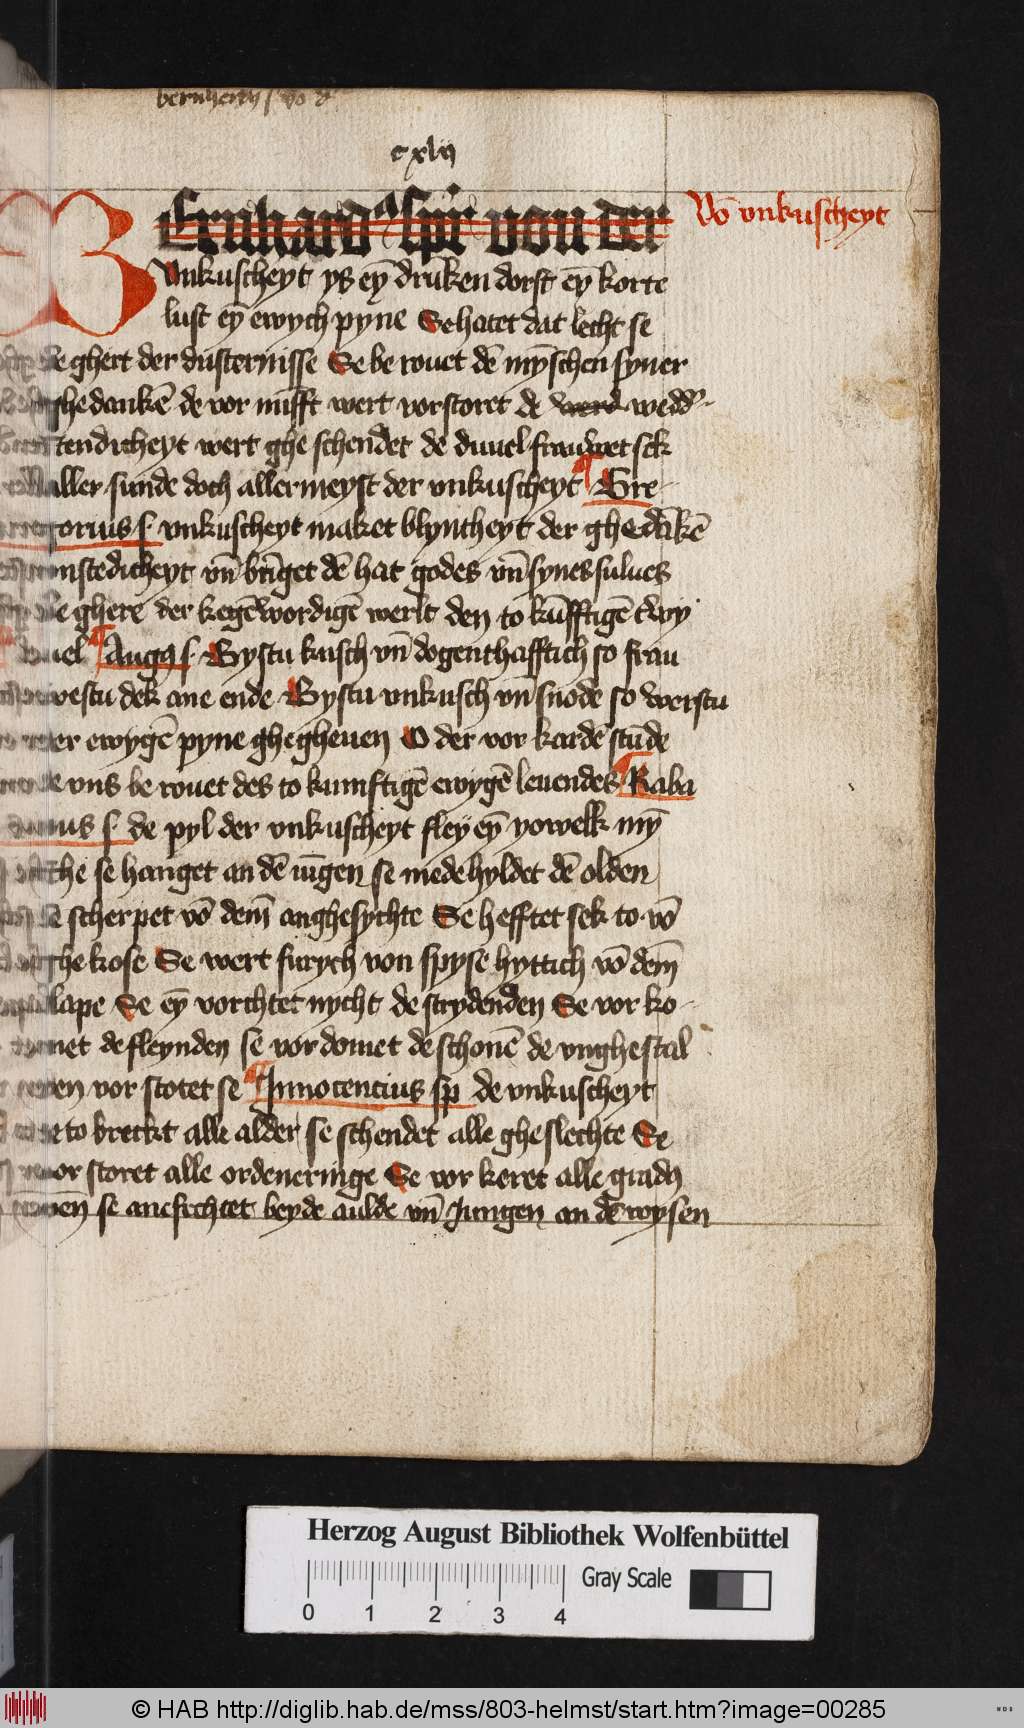 cxlvj
BErnhard9 spr von der
Vō vnkuscheyt
vnkuscheyt ys eȳ drūken dorst eȳ korte
lust eȳ ewych pyne Se hatet dat lecht se
ghert der dusternisse Se be rouet dē mȳschen syner
ghedankē de vor nūfft wert vorstoret de werd wedd
tendicheyt wert ghe schendet de duuel frauwet sek
aller sunde doch allermeyst der vnkuscheyt Gre
gorius s vnkuscheyt maket blyntheyt der ghedākē
vnstedicheyt vn̄ brīget dē hat godes vn̄ synes sulues
ghere der kegēwordigē werlt den to kūfftigē twy
uel Aug9 s Bystu kusch vn̄ dogenthafftich so frau
westu dek ane ende Bystu vnkusch vn̄ snode so werstu
er ewygē pyne ghegheuen O der vor kardē stūde
de vns be rouet des to kumftigē ewygē leuendes Raba
nus s de pyl der vnkuscheyt fley eȳ yowelk mȳ
sche se hanget an dē iūgen se medehyldet dē olden
scherpet vō dem̄ anghesychte Se hefftet sek to vō
ghekose Se wert furych von spyse hyttich vō dem̄
slape Se eȳ vorchtet nycht de strydenden Se vor ko
met de fleynden se vordomet de schonē de vnghestal
den vor stotet se Innocencius sp de vnkuscheyt
to breckt alle alder se schendet alle gheslechte Se
vor storet alle ordeneringe Se vor keret alle gradꝫ
se anefechtet beyde aulde vn̄ Jungen an dē wysen
Herzog August Bibliothek Wolfenbüttel
Gray Scale
0 1 2 3 4
© HAB http://diglib.hab.de/mss/803-helmst/start.htm?image=00285